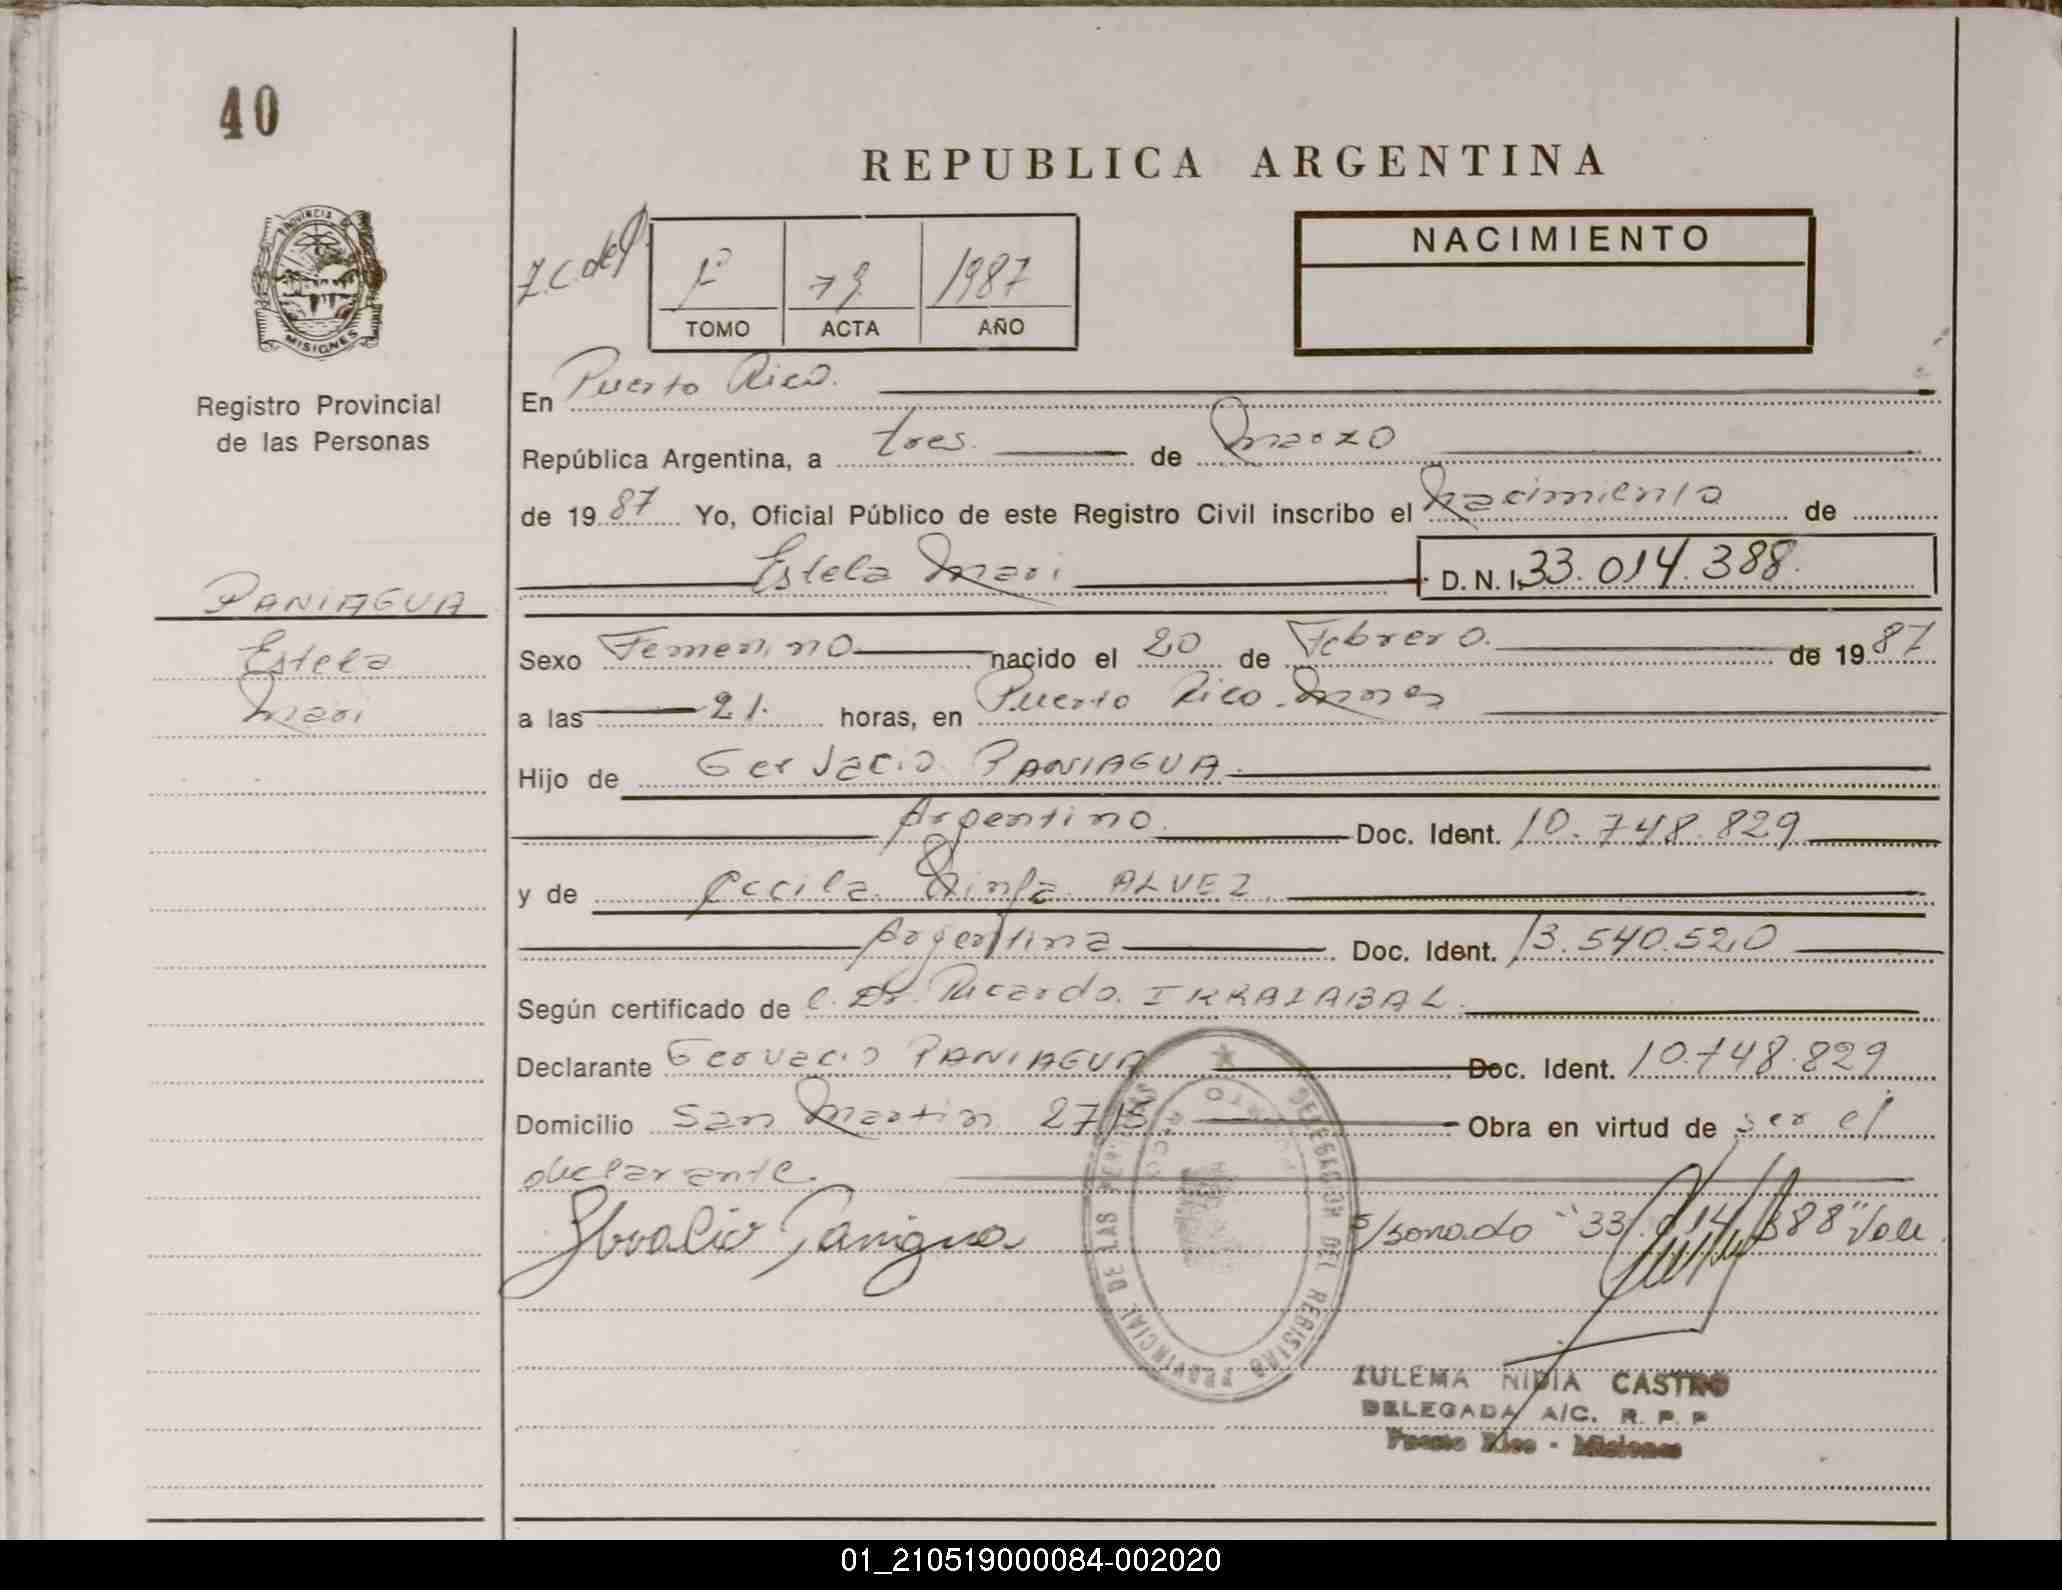 40
REPUBLICA ARGENTINA
PROVINCIA DE
MISIONES
Registro Provincial
de las Personas
1º 79 1987
TOMO ACTA AÑO
NACIMIENTO
En Puerto Rico.
República Argentina, a tres. de Marzo
de 1987 Yo, Oficial Público de este Registro Civil inscribo el Nacimiento de
Estela Mari D.N.I. 33.014.388.
PANIAGUA
Estela
Mari
Sexo Femenino nacido el 20 de Febrero. de 1987
a las 21. horas, en Puerto Rico. Mnes
Hijo de Gervacio PANIAGUA.
Argentino. Doc. Ident. 10.748.829
y de Cecila Ninfa ALVEZ
Argentina Doc. Ident. 13.540.520
Según certificado de Dr. Ricardo IRRAZABAL.
Declarante Gervacio PANIAGUA Doc. Ident. 10.748.829
Domicilio San Martin 2715 Obra en virtud de ser el
declarante.
DELEGACION DEL REGISTRO PROVINCIAL DE LAS PERSONAS
PUERTO RICO
s/borrado "33.014.388" Vale.
ZULEMA NIDIA CASTRO
DELEGADA A/C. R. P. P
Puerto Rico - Misiones
01_210519000084-002020